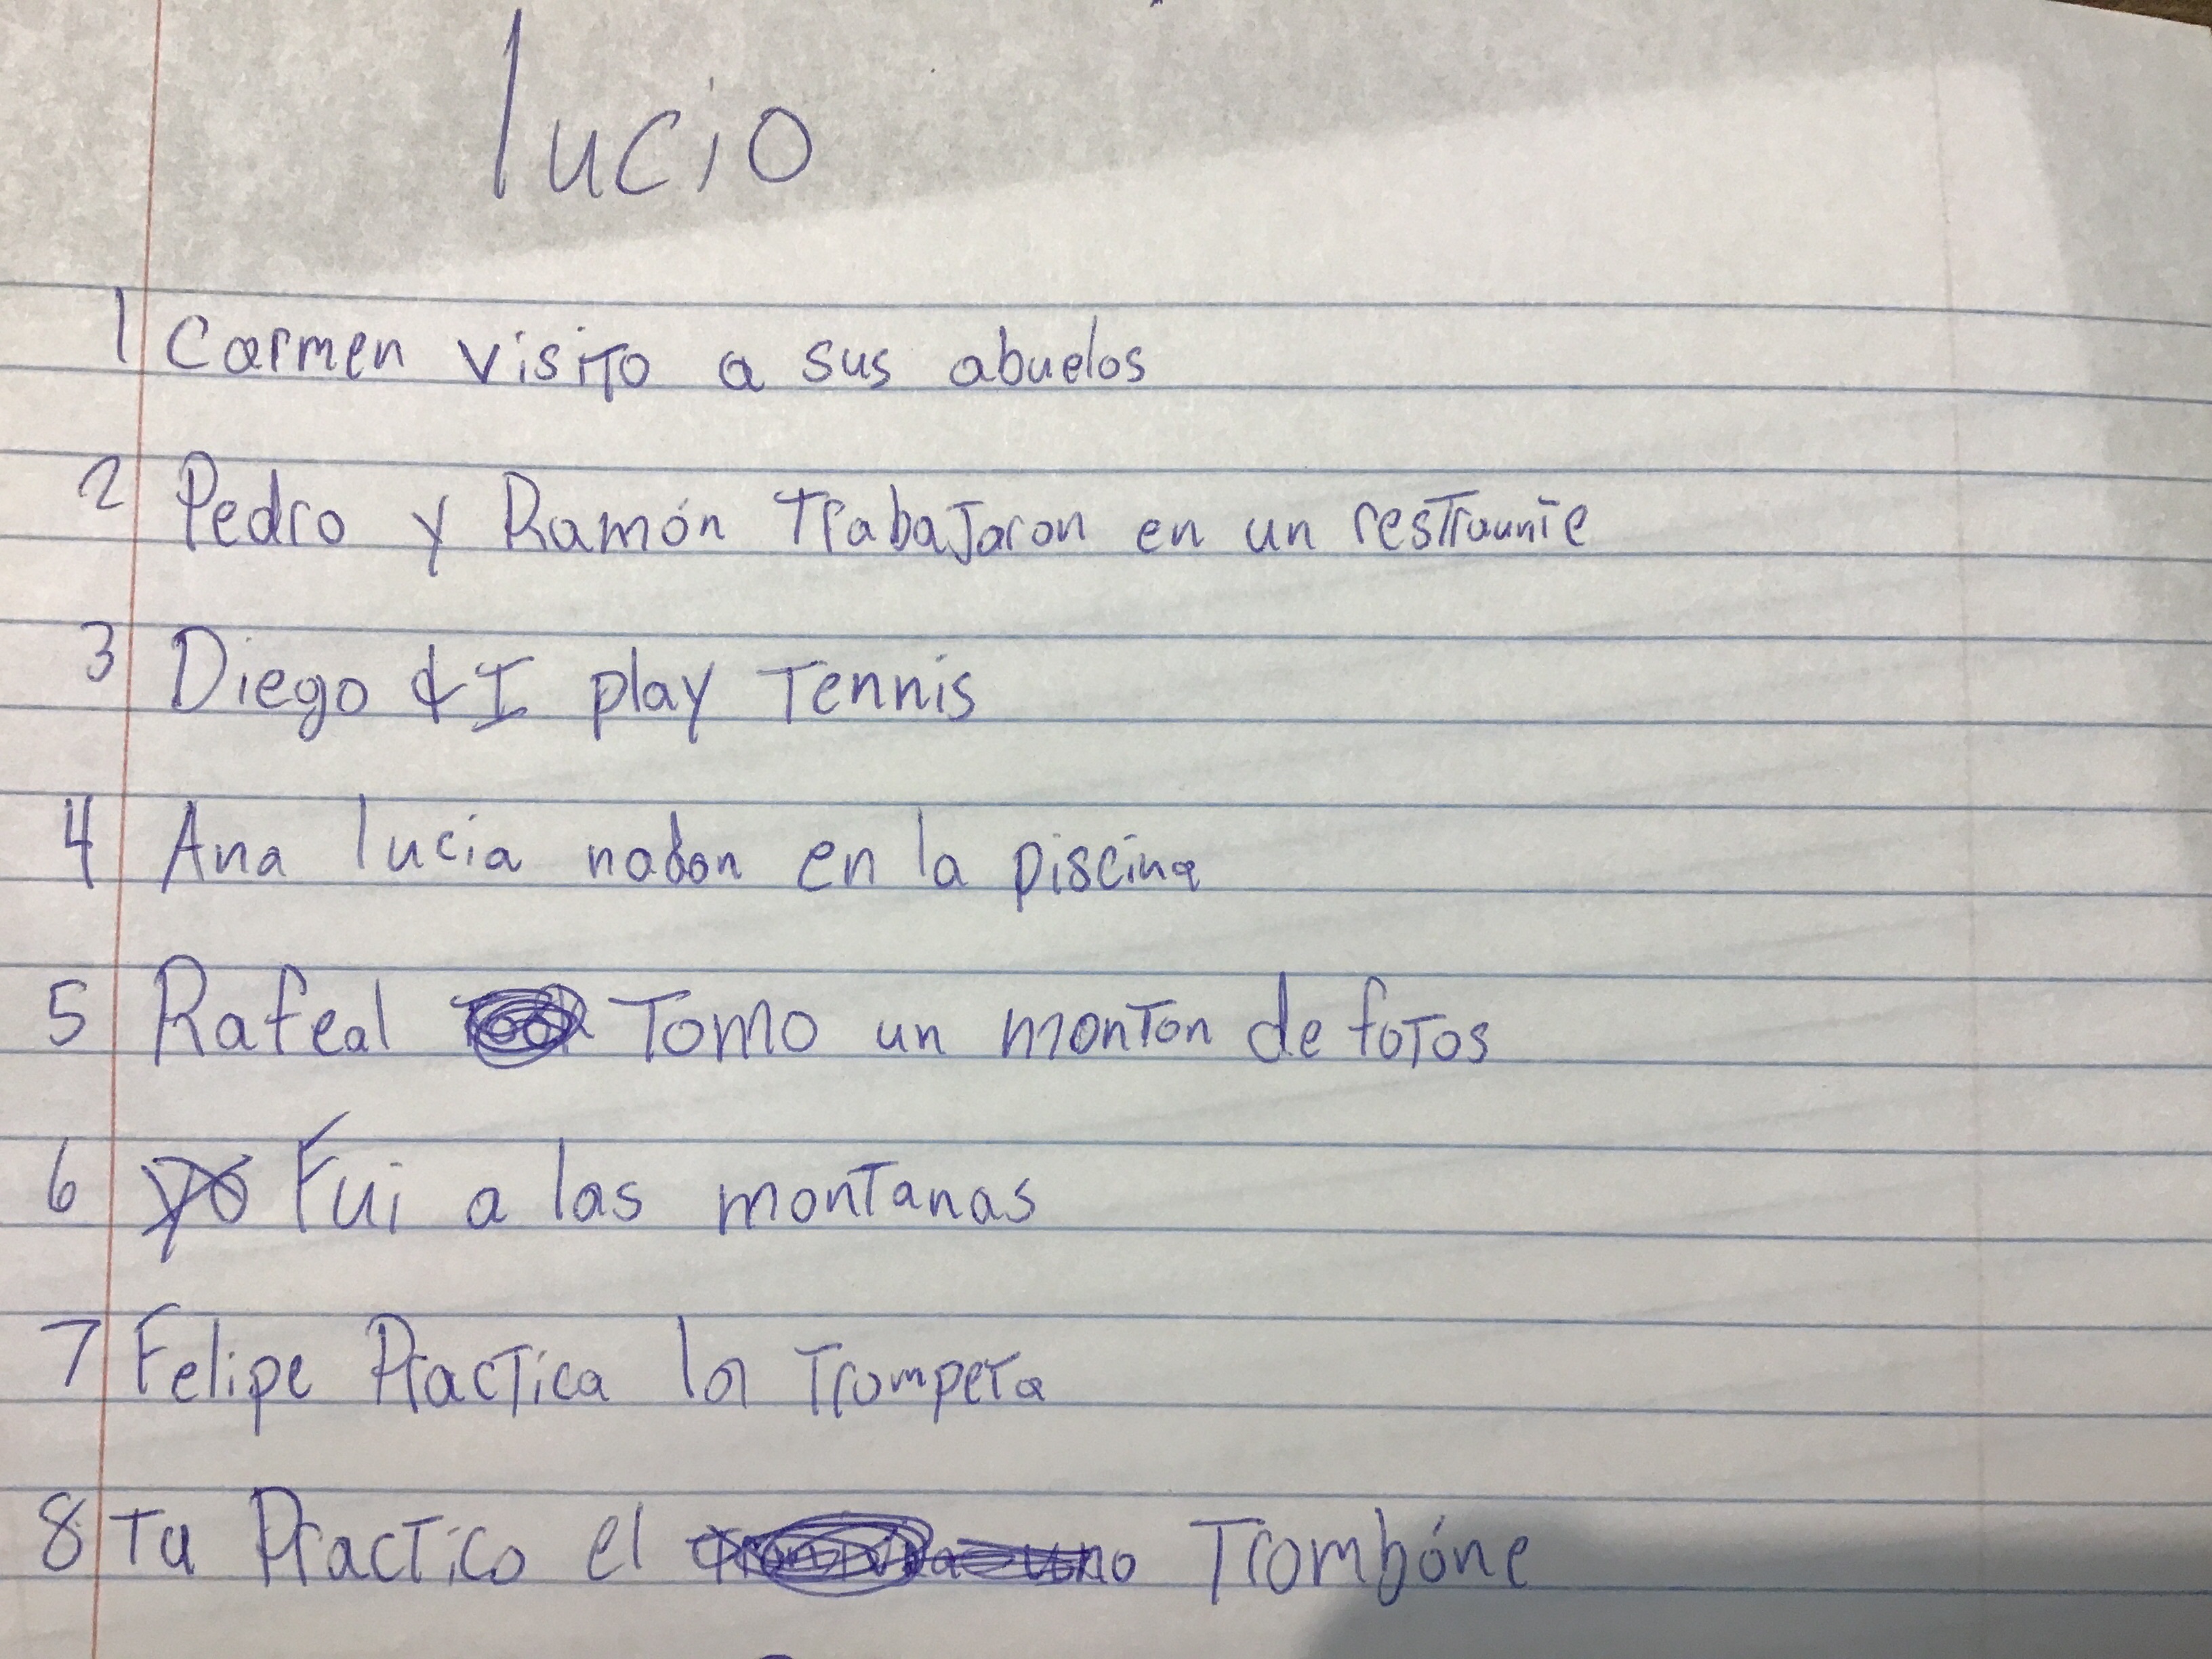 lucio
1 Carmen visito a sus abuelos
2 Pedro y Ramón Trabajaron en un restraunte
3 Diego & I play Tennis
4 Ana lucia nadan en la piscina
5 Rafeal Tomo un monton de fotos
6 Fui a las montanas
7 Felipe Practica la Trompeta
8 Tu Practico el Trombóne